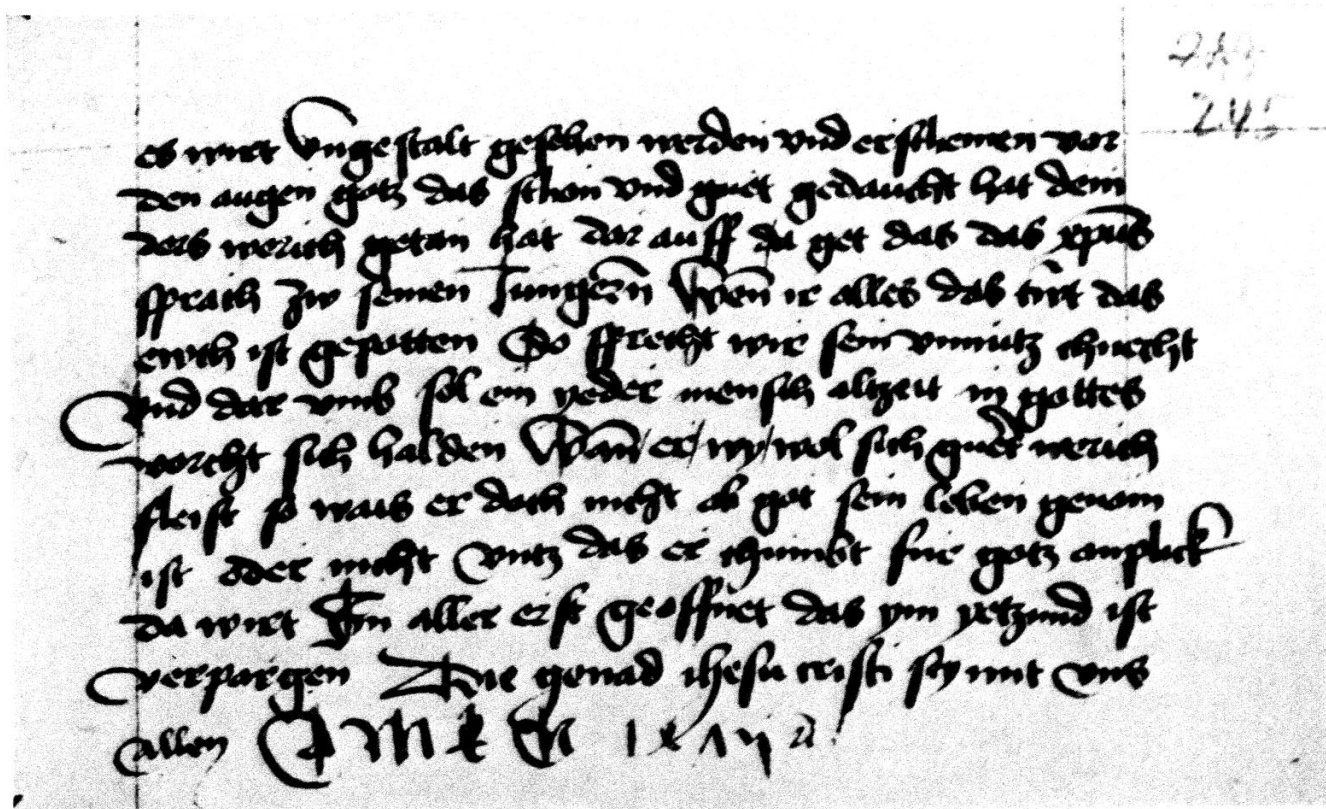 245
es wirt vngestalt gesehen werden vnd erscheinen vor
den augen gotz das schon vnd guet gedaucht hat dem
ders werich getan hat dar auff da get das das xpūs
sprach zw seinen Jungern̄ Wen̄ ir alles das tut das
ewch ist gepotten So sprecht wir sein vnnutz chnecht
Vnd dar vmb sol ein yeder mensch altzeit in gottes
vorcht sich halden Wan̄ er wy wol sich gueter werich
fleist so wais er doch nicht ob got sein leben genem
ist oder nicht vntz das er chumbt fur gotz anplick
da wirt Im aller erst geoffnet das ym yetzund ist
verporgen Die genad ihesu cristi sey mit vns
allen A M E N